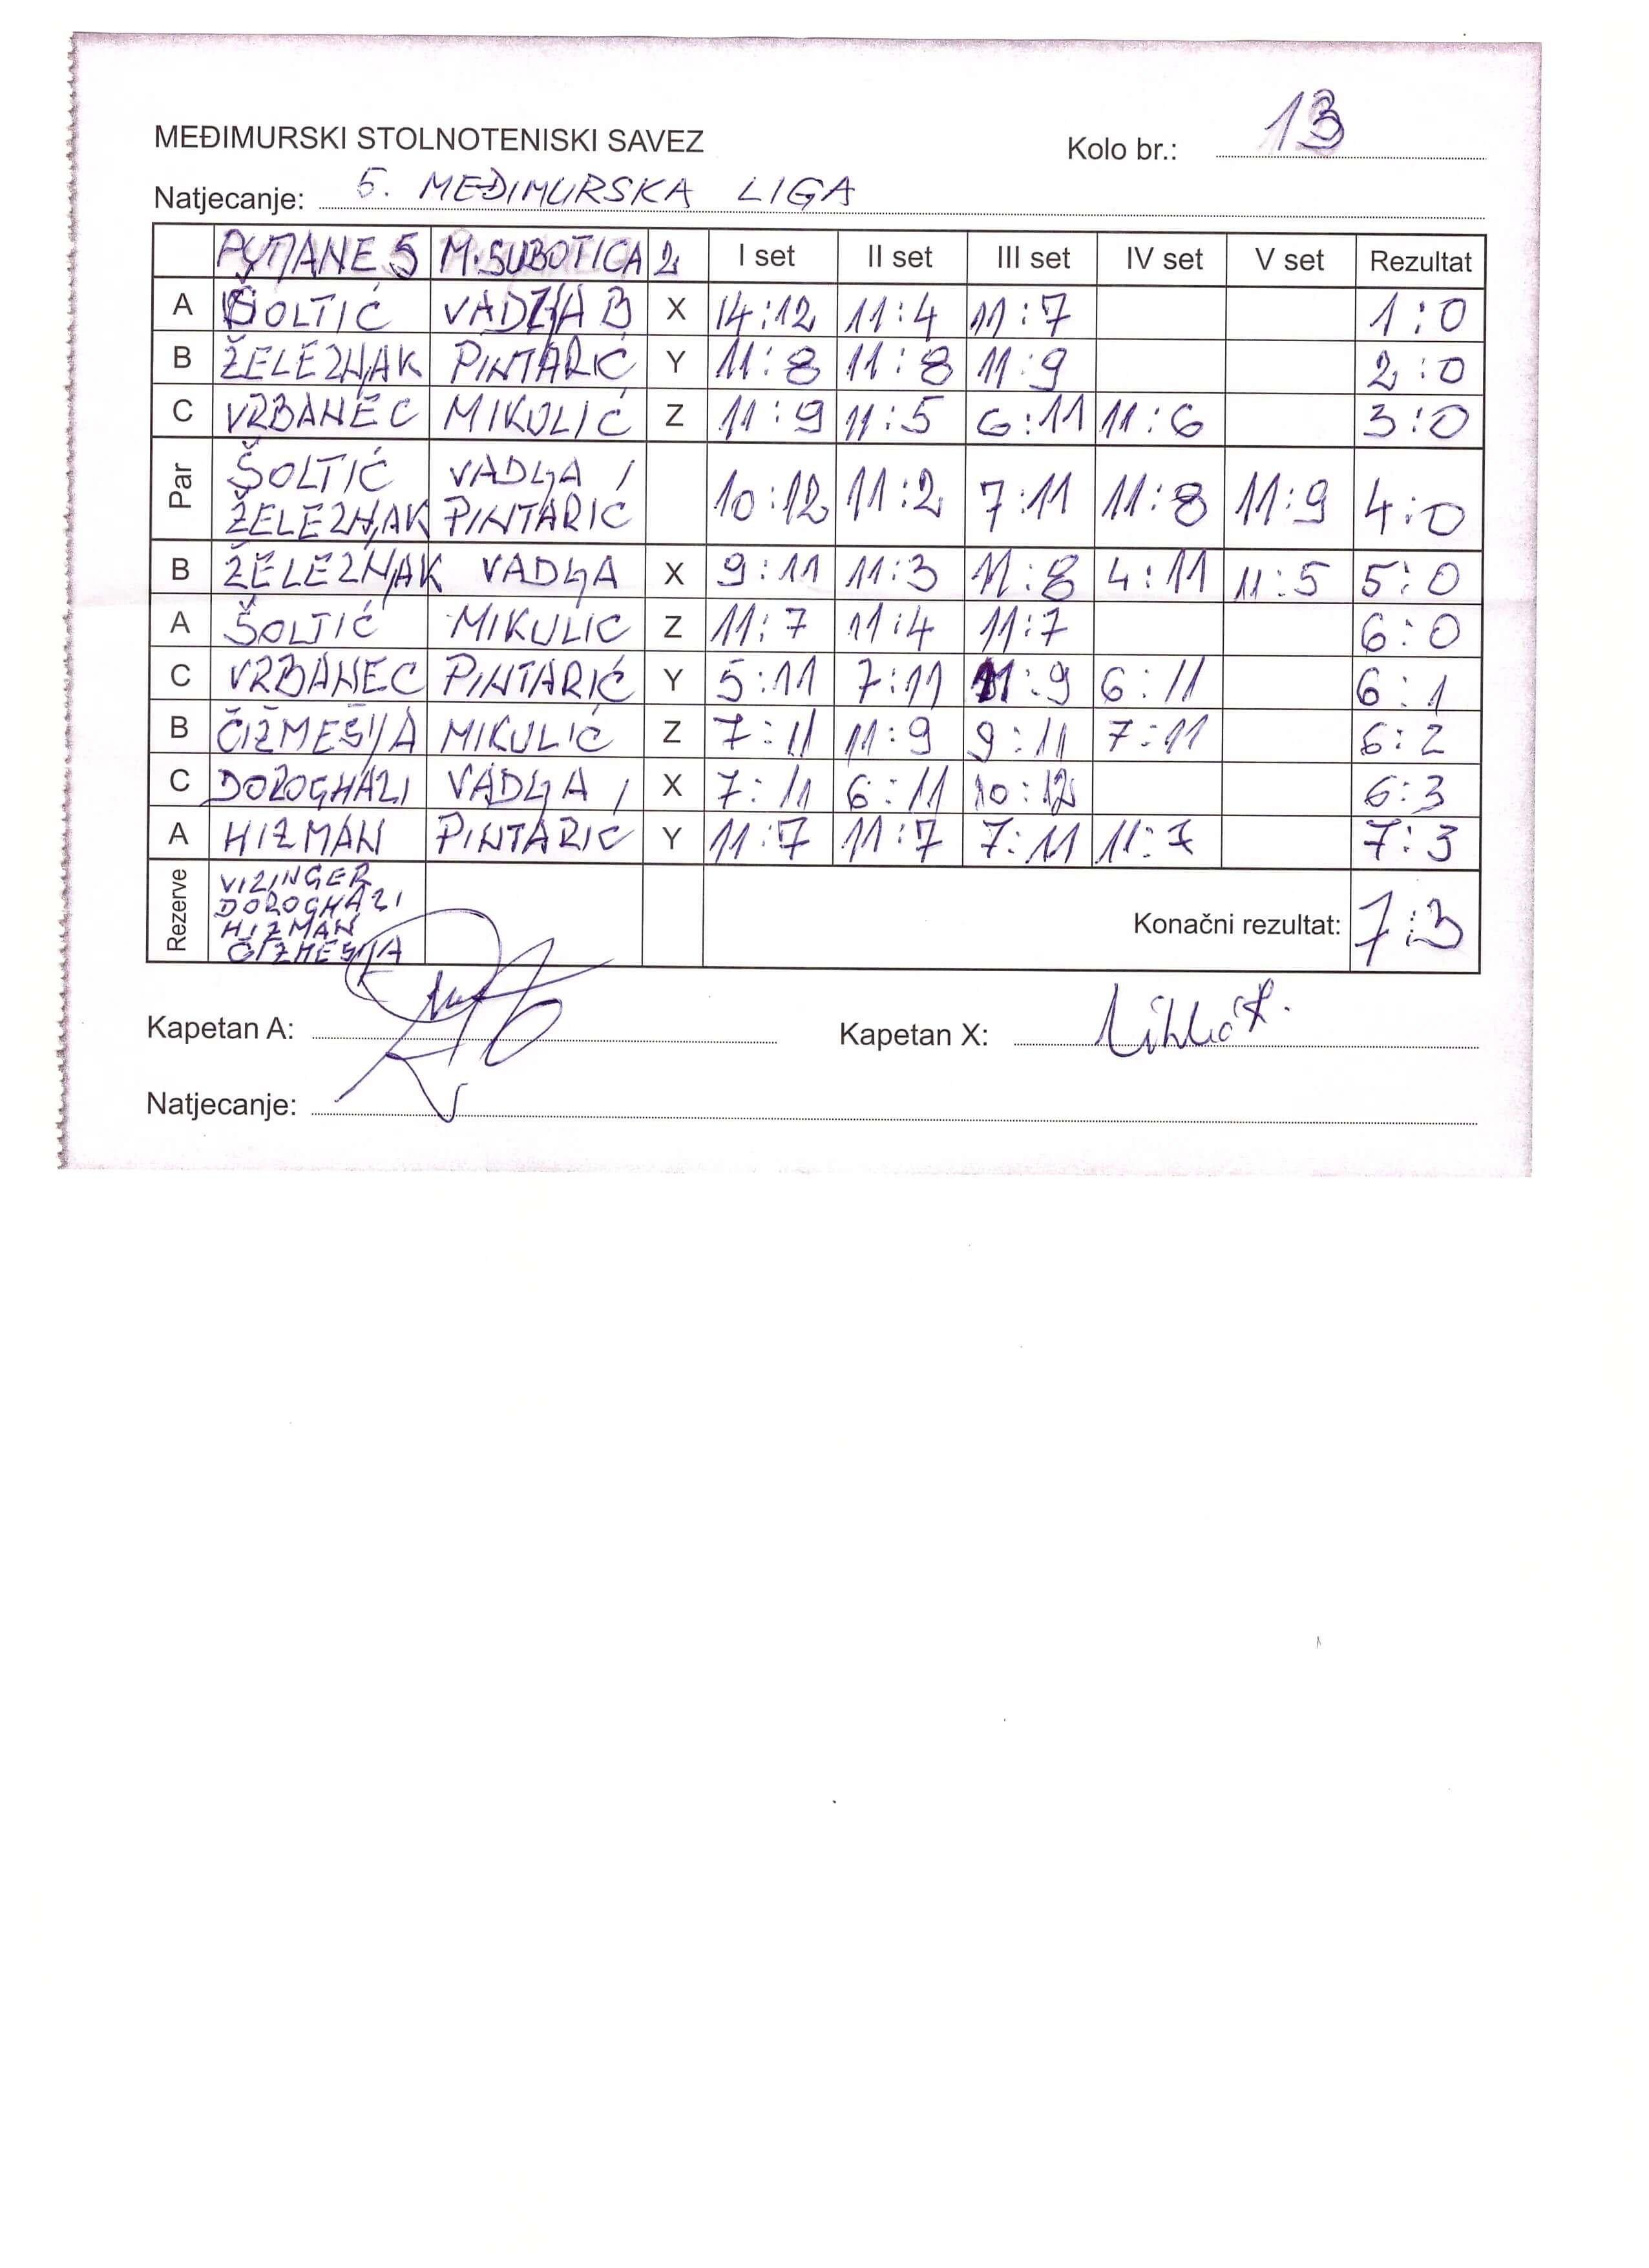 MEĐIMURSKI STOLNOTENISKI SAVEZ
Kolo br.: 13
Natjecanje: 5. MEĐIMURSKA LIGA
M. SUBOTICA 2 I set II set III set IV set V set Rezultat
A ŠOLTIĆ B X 14:12 11:4 11:7 1:0
B ŽELEZNJAK PINTARIĆ Y 11:8 11:8 11:9 2:0
C VRBANEC MIKULIĆ Z 11:9 11:5 6:11 11:6 3:0
Par ŠOLTIĆ VADLJA
ŽELEZNJAK PINTARIĆ 10:12 11:2 7:11 11:8 11:9 4:0
B ŽELEZNJAK VADLJA X 9:11 11:3 11:8 4:11 11:5 5:0
A ŠOLTIĆ MIKULIC Z 11:7 11:4 11:7 6:0
C VRBANEC PINTARIĆ Y 5:11 7:11 11:9 6:11 6:1
B ČIŽMEŠIJA MIKULIĆ Z 7:11 11:9 9:11 7:11 6:2
C DOROGHAZI VADLJA X 7:11 6:11 10:12 6:3
A HIZMAN PINTARIĆ Y 11:7 11:7 7:11 11:7 7:3
Rezerve VIZINGER
DOROGHAZI
HIZMAN
ČIZMEŠIJA
Konačni rezultat: 7:3
Kapetan A:
Kapetan X:
Natjecanje: